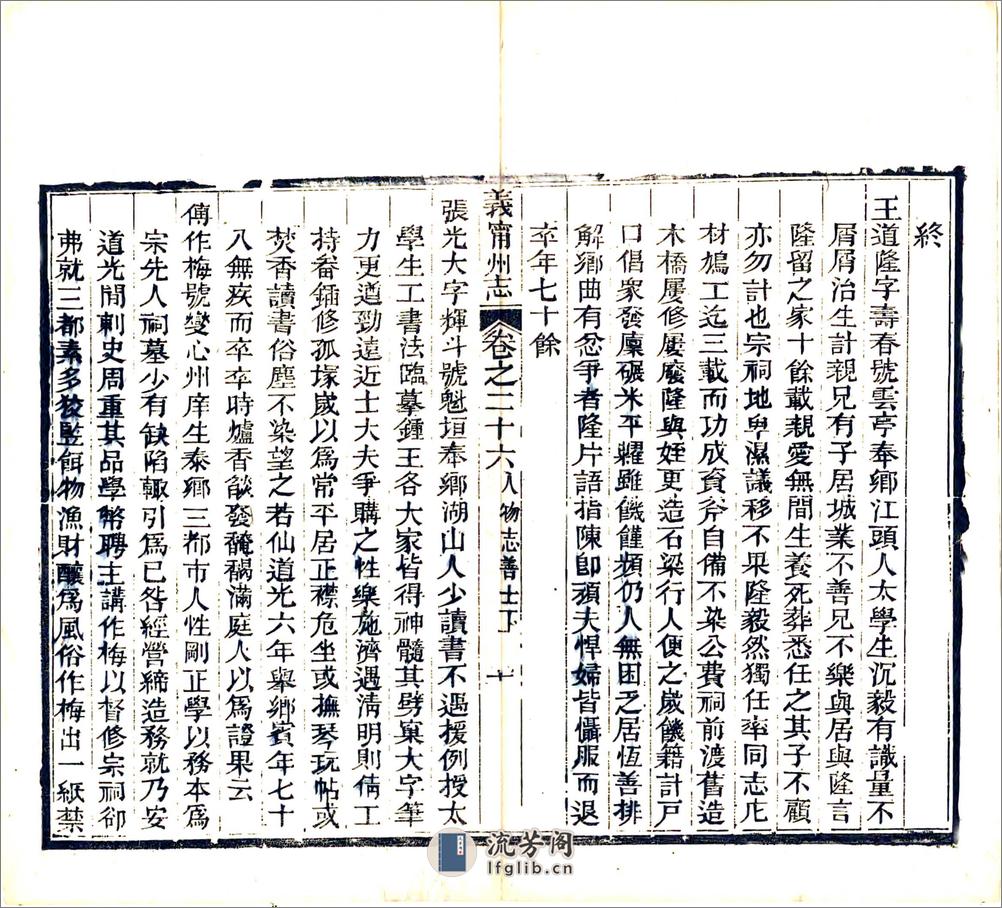 終
王道隆字壽春號雲亭奉鄉江頭人太學生沉毅有識量不
屑屑治生計親兄有子居城業不善兄不樂與居與隆言
隆留之家十餘載親愛無間生養死葬悉任之其子不顧
亦勿計也宗祠地卑濕議移不果隆毅然獨任率同志庀
材鳩工迄三載而功成資斧自備不染公費祠前渡舊造
木橋屢修屢廢隆與姪更造石梁行人便之歲饑籍計戸
口倡衆發廩碾米平糶雖饑饉頻仍人無困乏居恆善排
解鄉曲有忿爭者隆片語指陳卽頑夫悍婦皆懾服而退
卒年七十餘
義甯州志 卷之二十六 人物志善士下 十
張光大字輝斗號魁垣奉鄉湖山人少讀書不遇援例授太
學生工書法臨摹鍾王各大家皆得神髓其劈窠大字筆
力更遒勁遠近士大夫爭購之性樂施濟遇清明則倩工
持畚鍤修孤塚歲以爲常平居正襟危坐或撫琴玩帖或
焚香讀書俗塵不染望之若仙道光六年舉鄉賓年七十
八無疾而卒卒時爐香餤發馣馤滿庭人以爲證果云
傅作梅號燮心州庠生泰鄉三都市人性剛正學以務本爲
宗先人祠墓少有缺陷輙引爲已咎經營締造務就乃安
道光間刺史周重其品學幣聘主講作梅以督修宗祠卻
弗就三都素多狡監餌物漁財釀爲風俗作梅出一紙禁
流芳阁
lfglib.cn